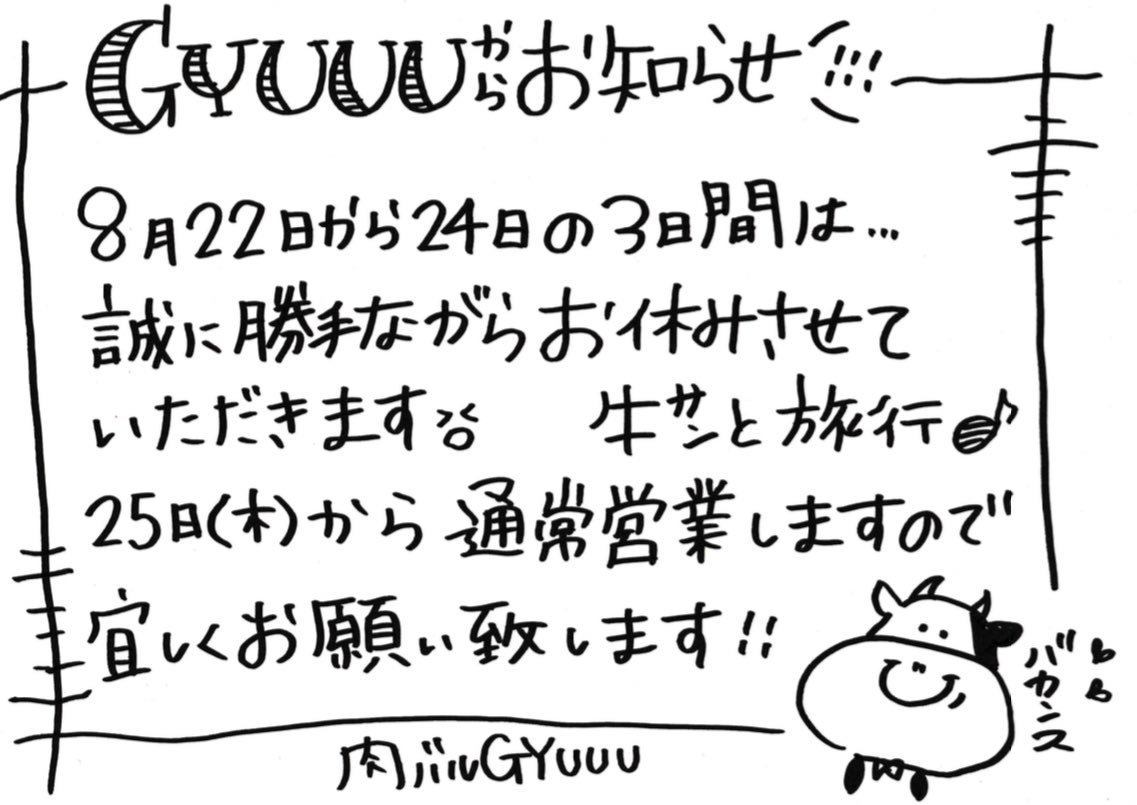 GYUUUからお知らせ!!!
8月22日から24日の3日間は...
誠に勝手ながらお休みさせて
いただきます 牛サンと旅行♪
25日(木)から通常営業しますので
宜しくお願い致します!!
バカンス
肉バルGYUUU